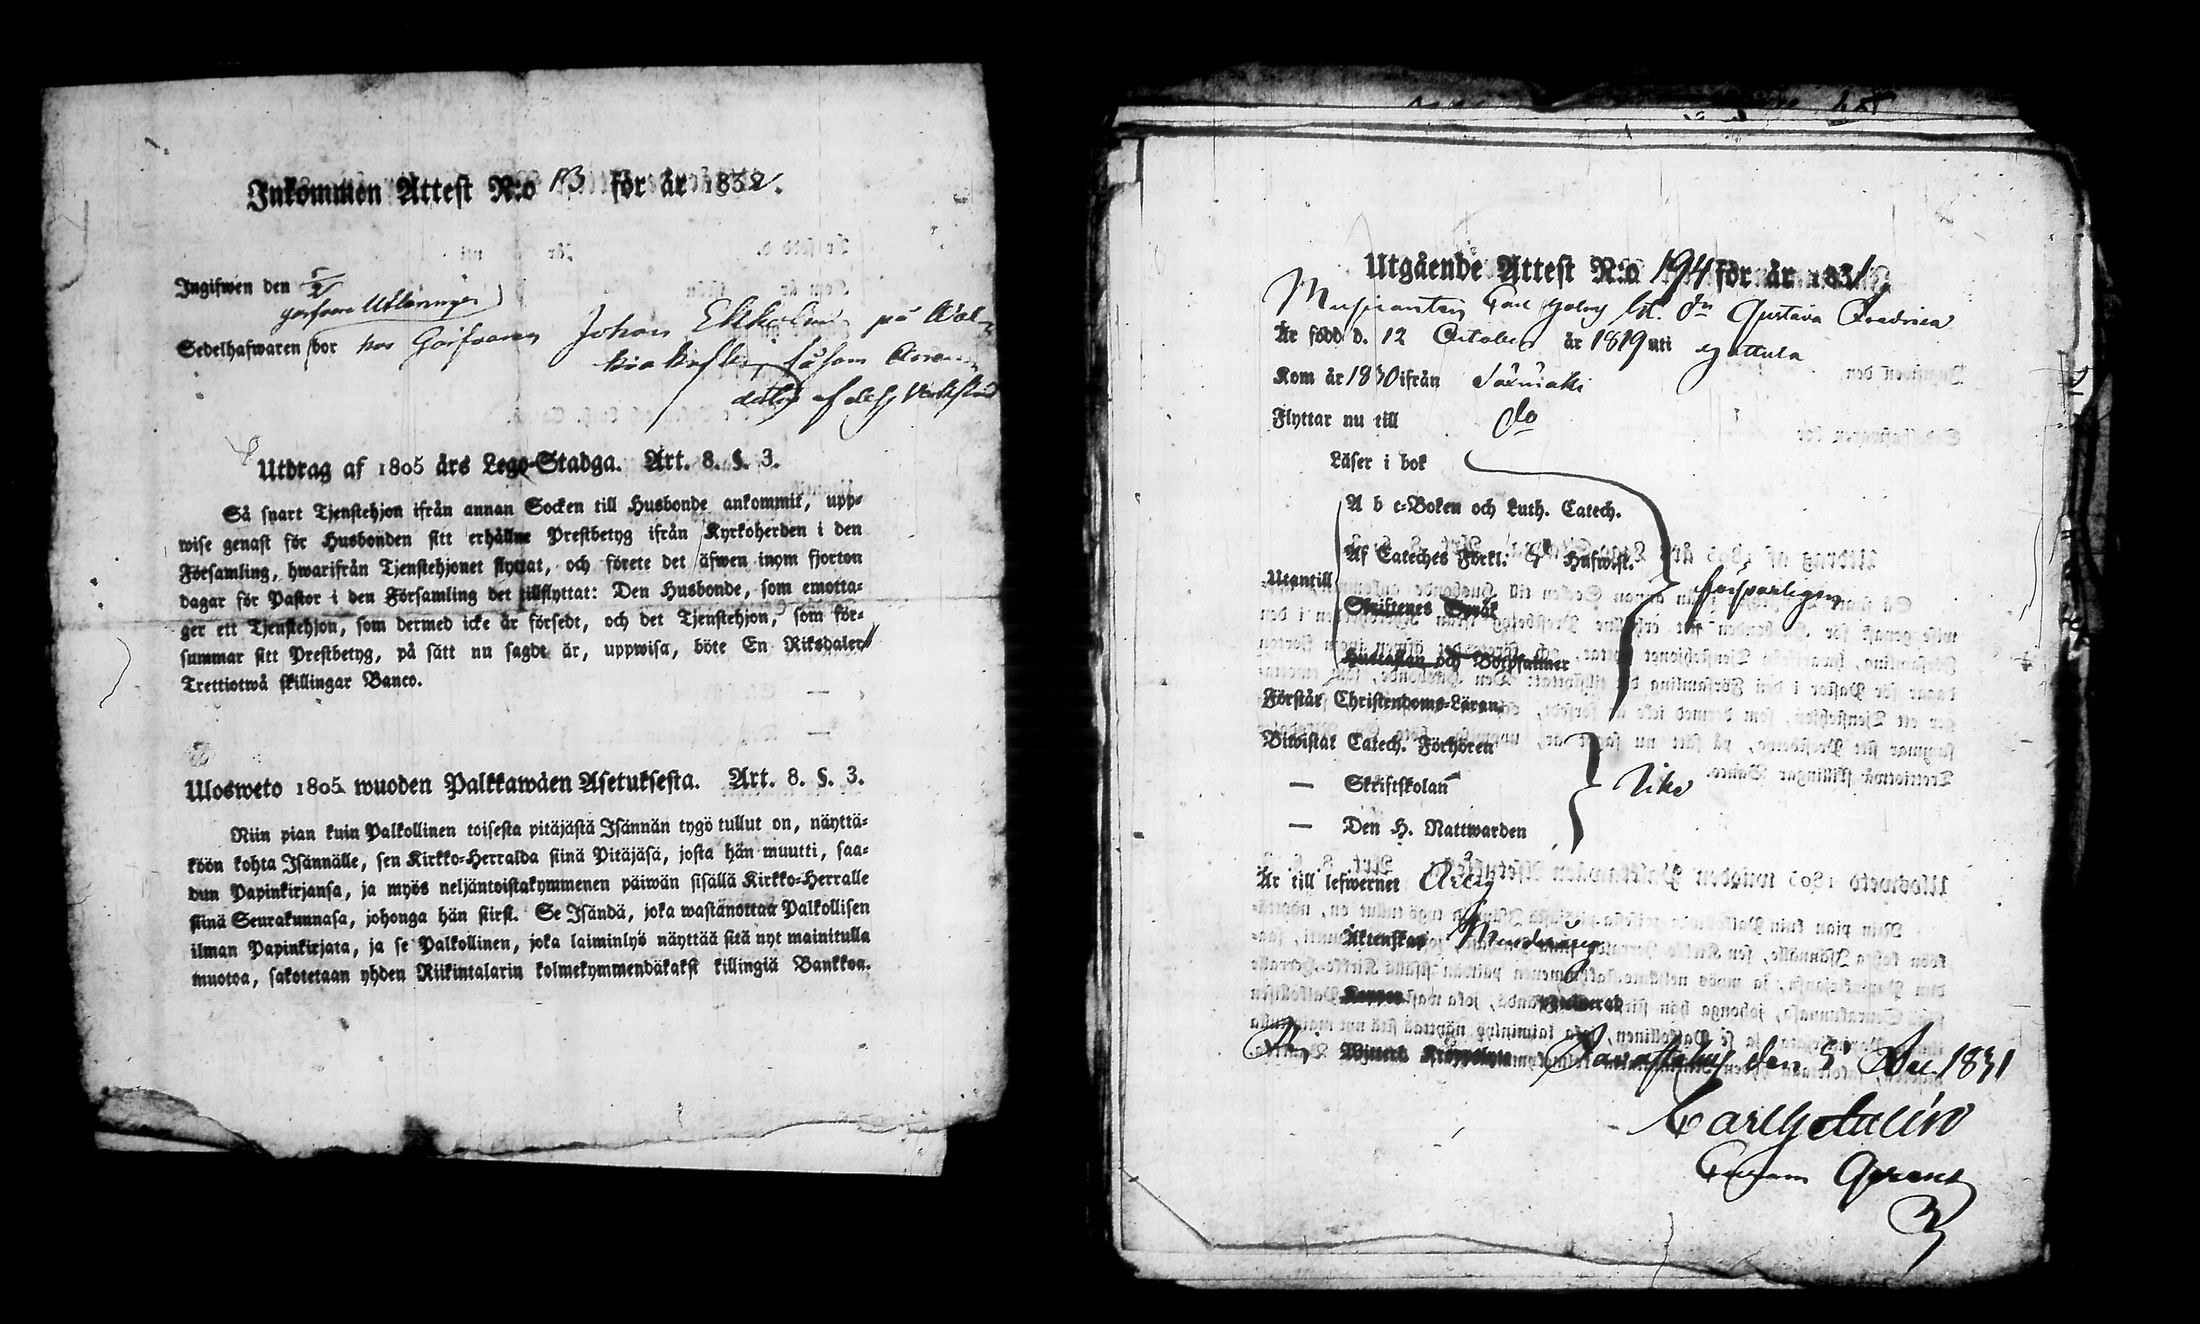 Inkommen Attest N:o 13 för år 1832.
Ingifwen den 5/2
Sedelhafwaren bor hos Garfvaren Johan Ekholm på Wal-
såsom
af dess Verkstad
Utdrag af 1805 års Lego-Stadga. Art. 8. §. 3.
Så snart Tjenstehjon ifrån annan Socken till Husbonde ankommit, upp-
wise genast för Husbonden sitt erhållne Prestbetyg ifrån Kyrkoherden i den
Församling, hwarifrån Tjenstehjonet flyttat, och förete det äfwen inom fjorton
dagar för Pastor i den Församling det tillflyttat: Den Husbonde, som emotta-
ger ett Tjenstehjon, som dermed icke är försedt, och det Tjenstehjon, som för-
summar sitt Prestbetyg, på sätt nu sagdt är, uppwisa, böte En Riksdaler
Trettiotwå skillingar Banco.
Ulosweto 1805 wuoden Palkkawäen Asetuksesta. Art. 8. §. 3.
Niin pian kuin Palkollinen toisesta pitäjästä Isännän tygö tullut on, näyttä-
köön kohta Isännälle, sen Kirkko-Herralda siinä Pitäjäsä, josta hän muutti, saa-
dun Papinkirjansa, ja myös neljäntoistakymmenen päiwän sisällä Kirkko-Herralle
siinä Seurakunnasa, johonga hän siirsi. Se Isändä, joka wastanottaa Palkollisen
ilman Papinkirjata, ja se Palkollinen, joka laiminlyö näyttää sitä nyt mainitulla
muotoa, sakotetaan yhden Riikintalarin kolmekymmendäkaksi killingiä Bankkoa.
Utgående Attest N:o 194 för år 1831.
Musicanten Carl Gustava Fredrica
Är född d. 12 October år 1819 uti Hattula
Kom år 1830 ifrån Säxmäki
Flyttar nu till do
Läser i bok
A b c-Boken och Luth. Catech.
Af Cateches Förkl: & Husw.st.
Utantill försvarligen
Skriftenes Språk
Hustaflan och Botpsalmer
Förstår Christendoms-Läran
Biwistat Catech. Förhören
— Skriftskolan lika
— Den H. Nattwarden
Är till lefwernet Ärlig
Äktenskap Minderårig
Koppor Vaccinerad
Witterl. Tavastehus den 5 Dec 1831
Carl